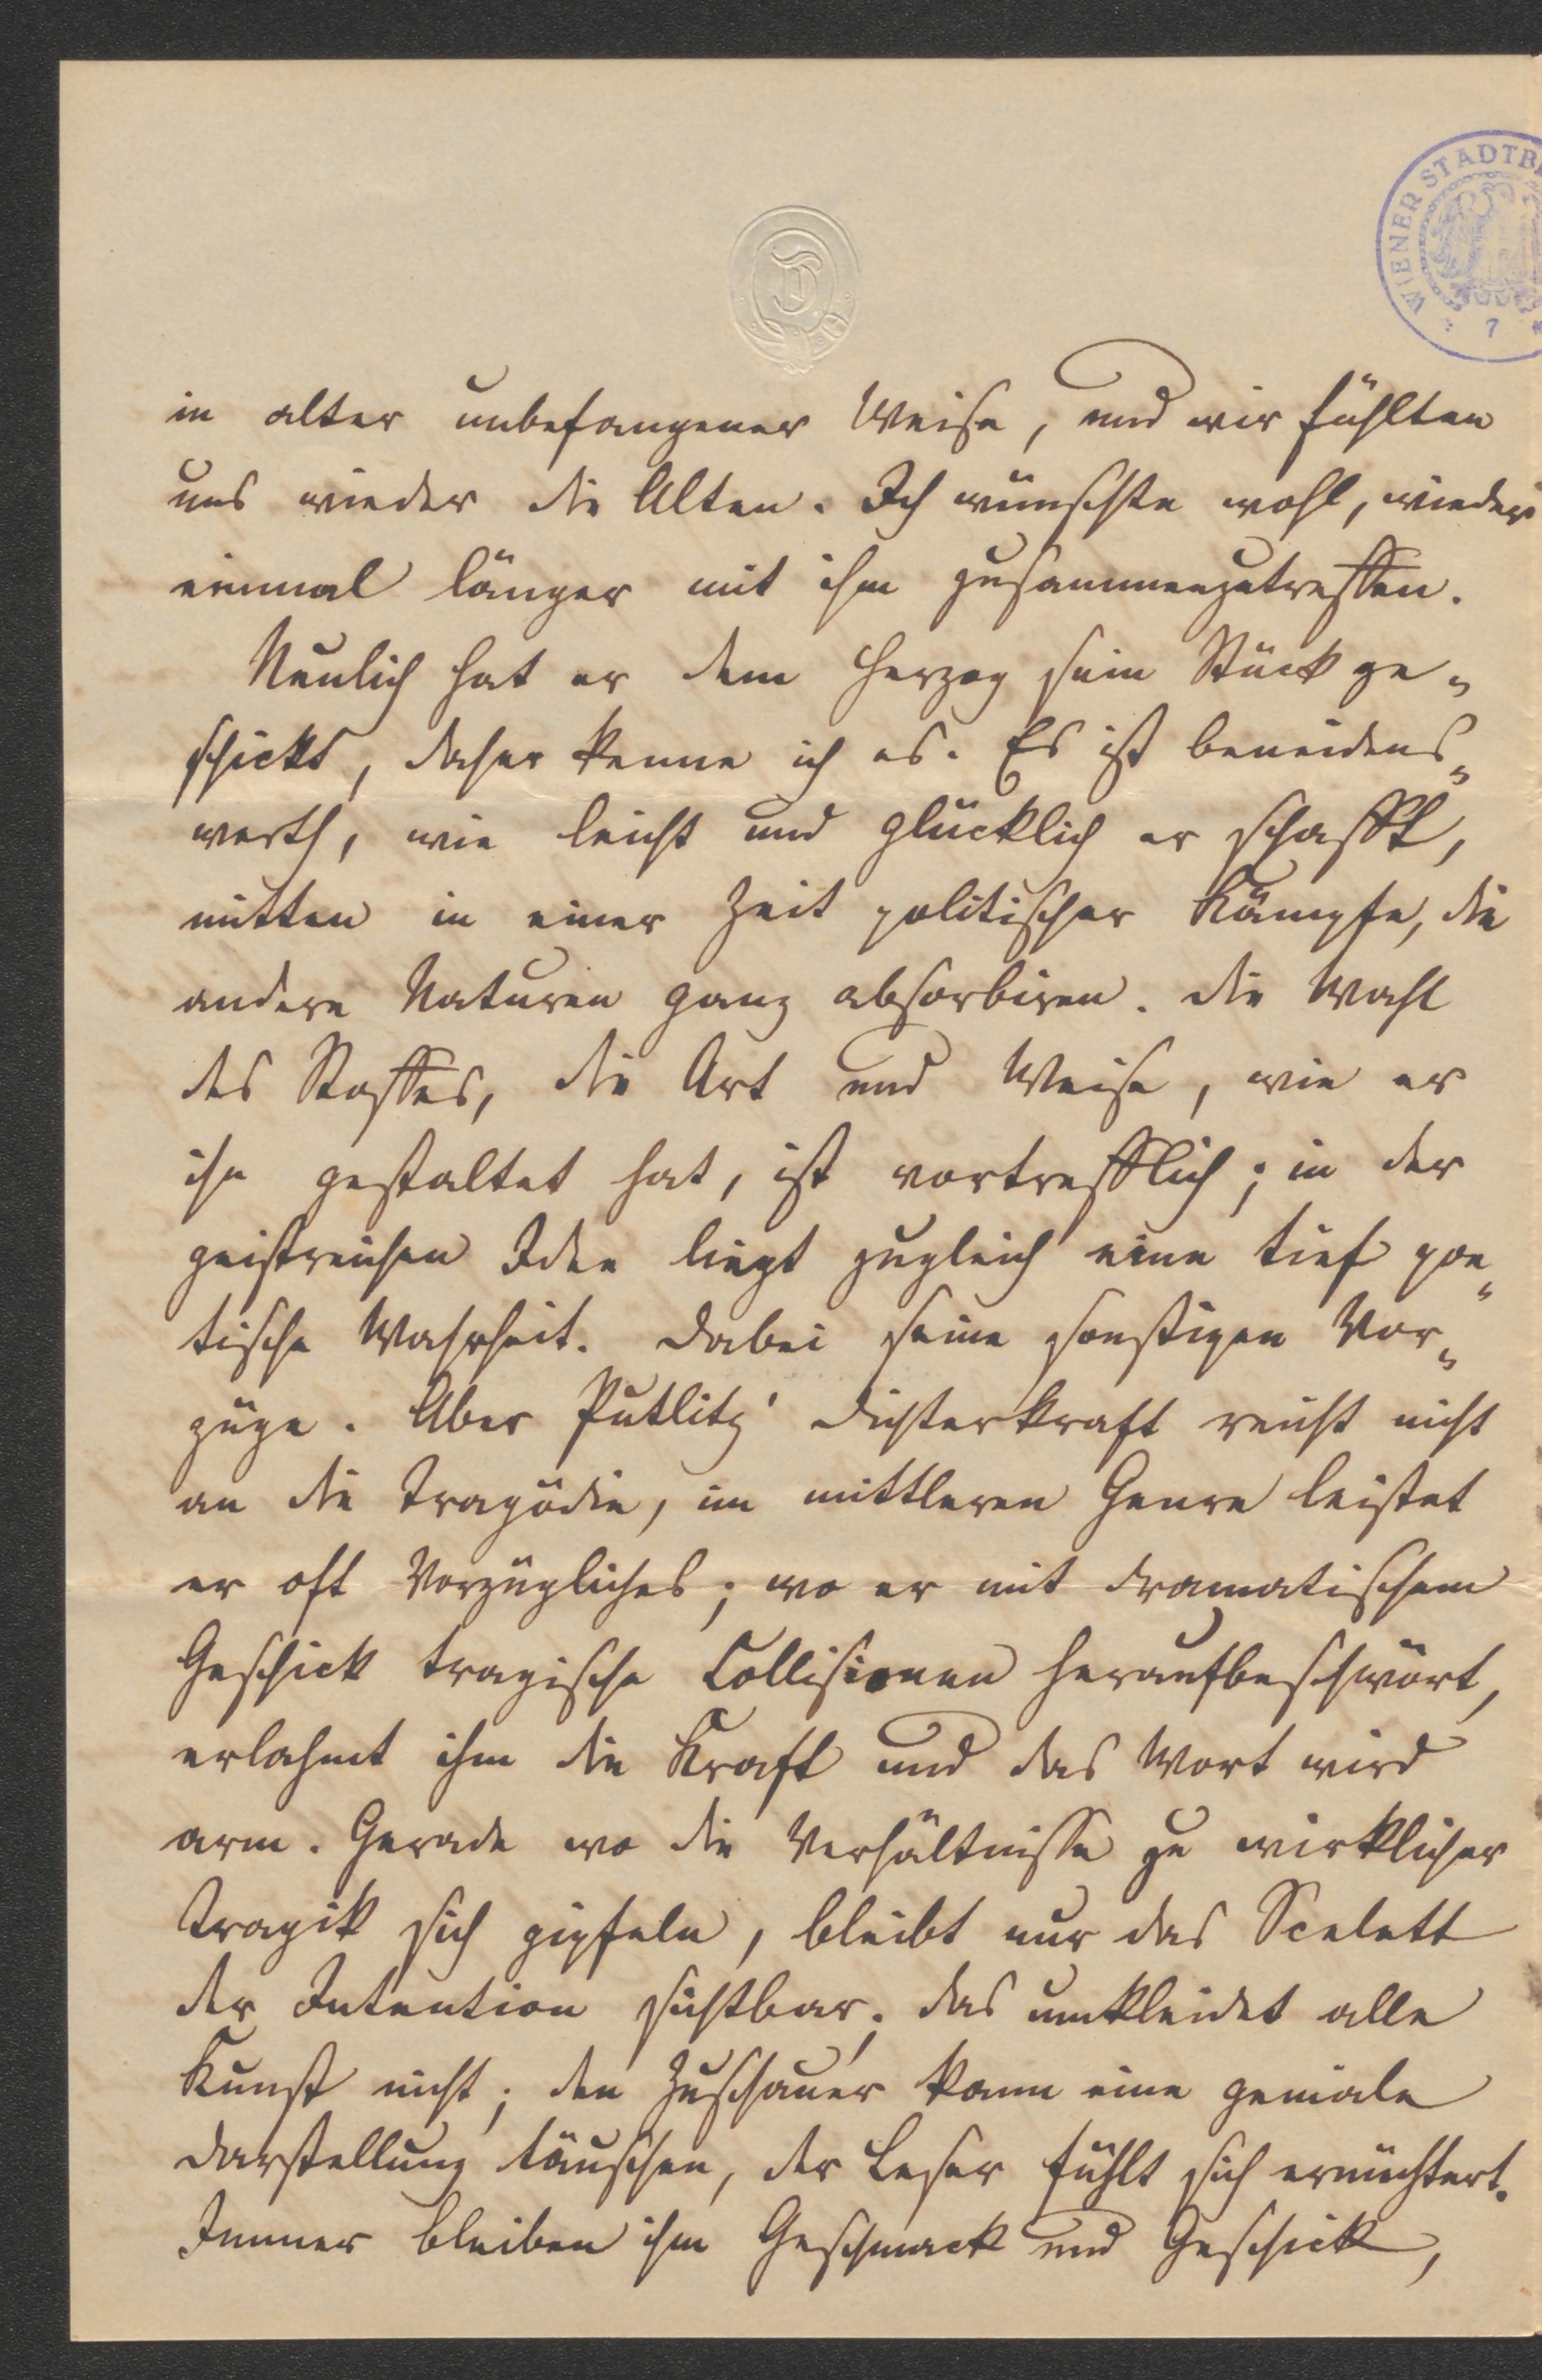 WIENER STADTB
7
in alter unbefangener Weise, und wir fühlten
uns wieder die Alten. Ich wünschte wohl, wieder
einmal länger mit ihm zusammenzutreffen.
Neulich hat er dem Herzog sein Stück ge-
schickt, daher kenne ich es. Es ist beneidens-
werth, wie leicht und glücklich er schafft,
mitten in einer Zeit politischer Kämpfe, die
andere Naturen ganz absorbiren. Die Wahl
des Stoffes, die Art und Weise, wie er
ihn gestaltet hat, ist vortrefflich; in der
geistreichen Idee liegt zugleich eine tief poe-
tische Wahrheit. Dabei seine sonstigen Vor-
züge. Aber Putlitz' Dichterkraft reicht nicht
an die Tragödie, im mittleren Genre leistet
er oft Vorzügliches; wo er mit dramatischem
Geschick tragische Collisionen heraufbeschwört,
erlahmt ihm die Kraft und das Wort wird
arm. Gerade wo die Verhältnisse zu wirklicher
Tragik sich gipfeln, bleibt nur das Scelett
der Intention sichtbar; das umkleidet alle
Kunst nicht; den Zuschauer kann eine geniale
Darstellung täuschen, der Leser fühlt sich ernüchtert.
Immer bleiben ihm Geschmack und Geschick,